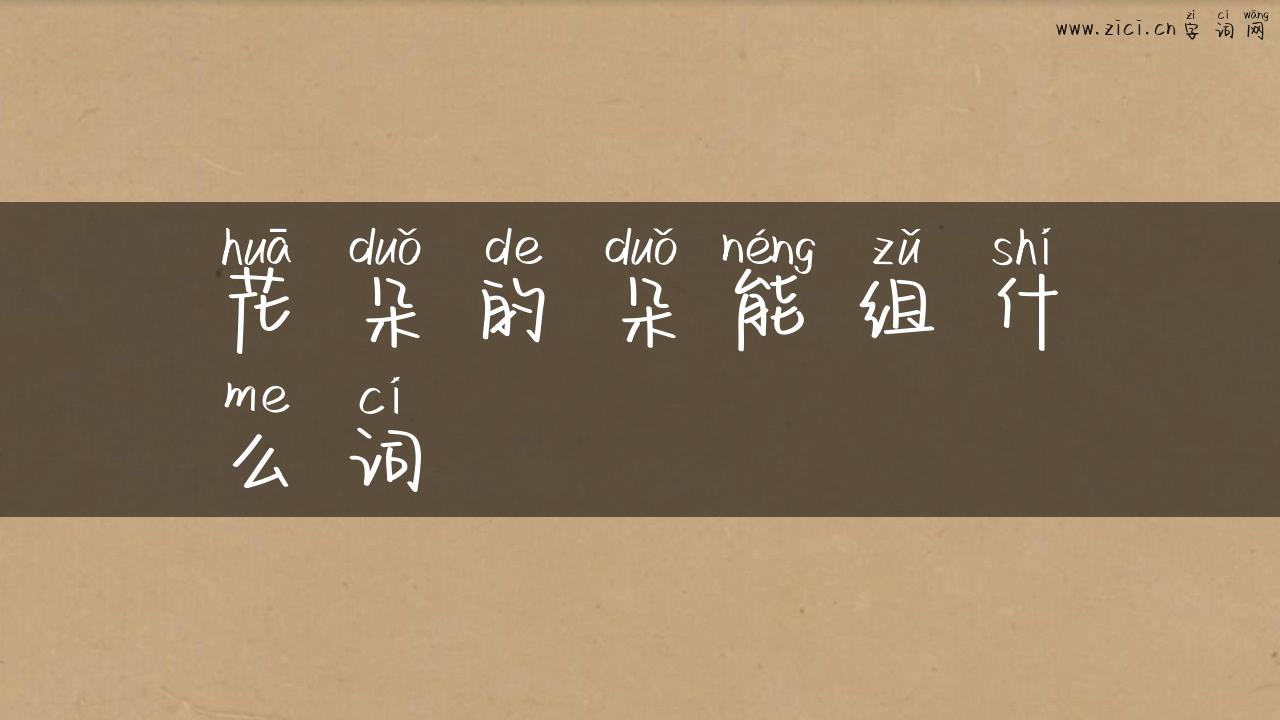 zì cí wǎng
www.zici.cn 字词网
huā duǒ de duǒ néng zǔ shí
花朵的朵能组什
me cí
么词